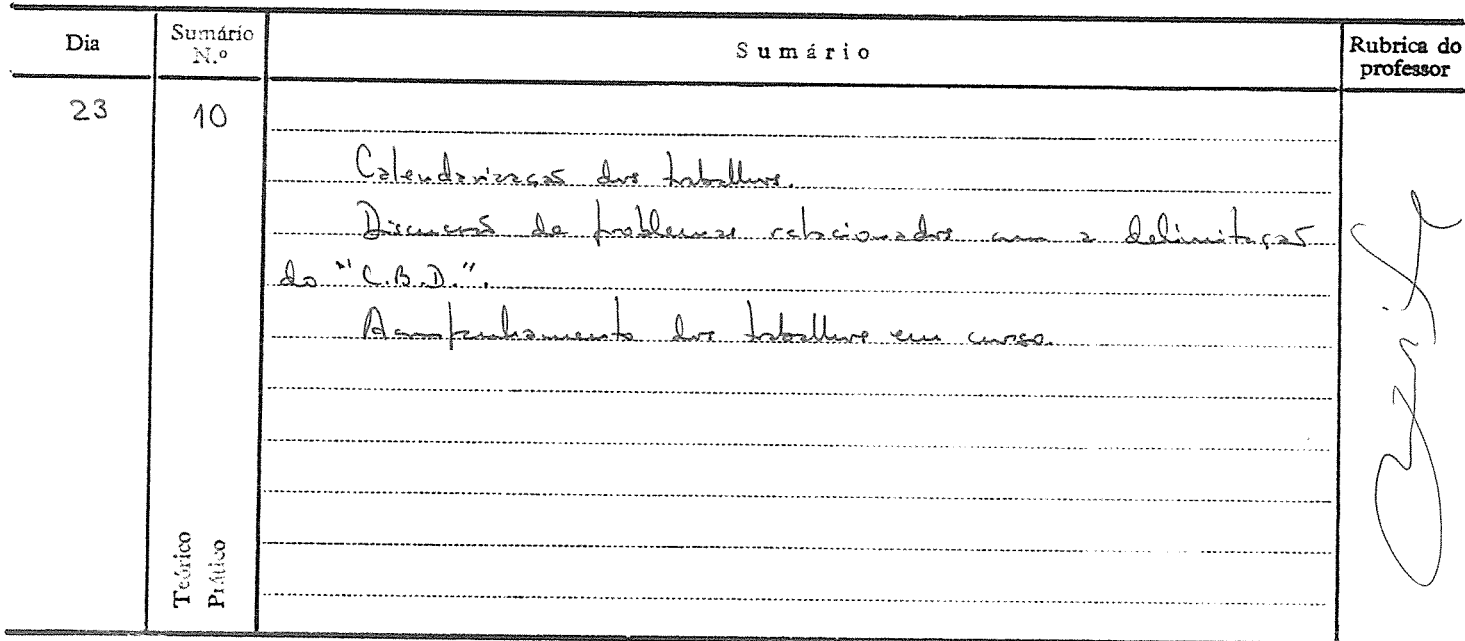 Dia
Sumário N.º
Sumário
Rubrica do professor
23
10
Calendarização dos trabalhos.
Discussão de problemas relacionados com a delimitação
do "C.B.D.".
Acompanhamento dos trabalhos em curso.
Teórico
Prático